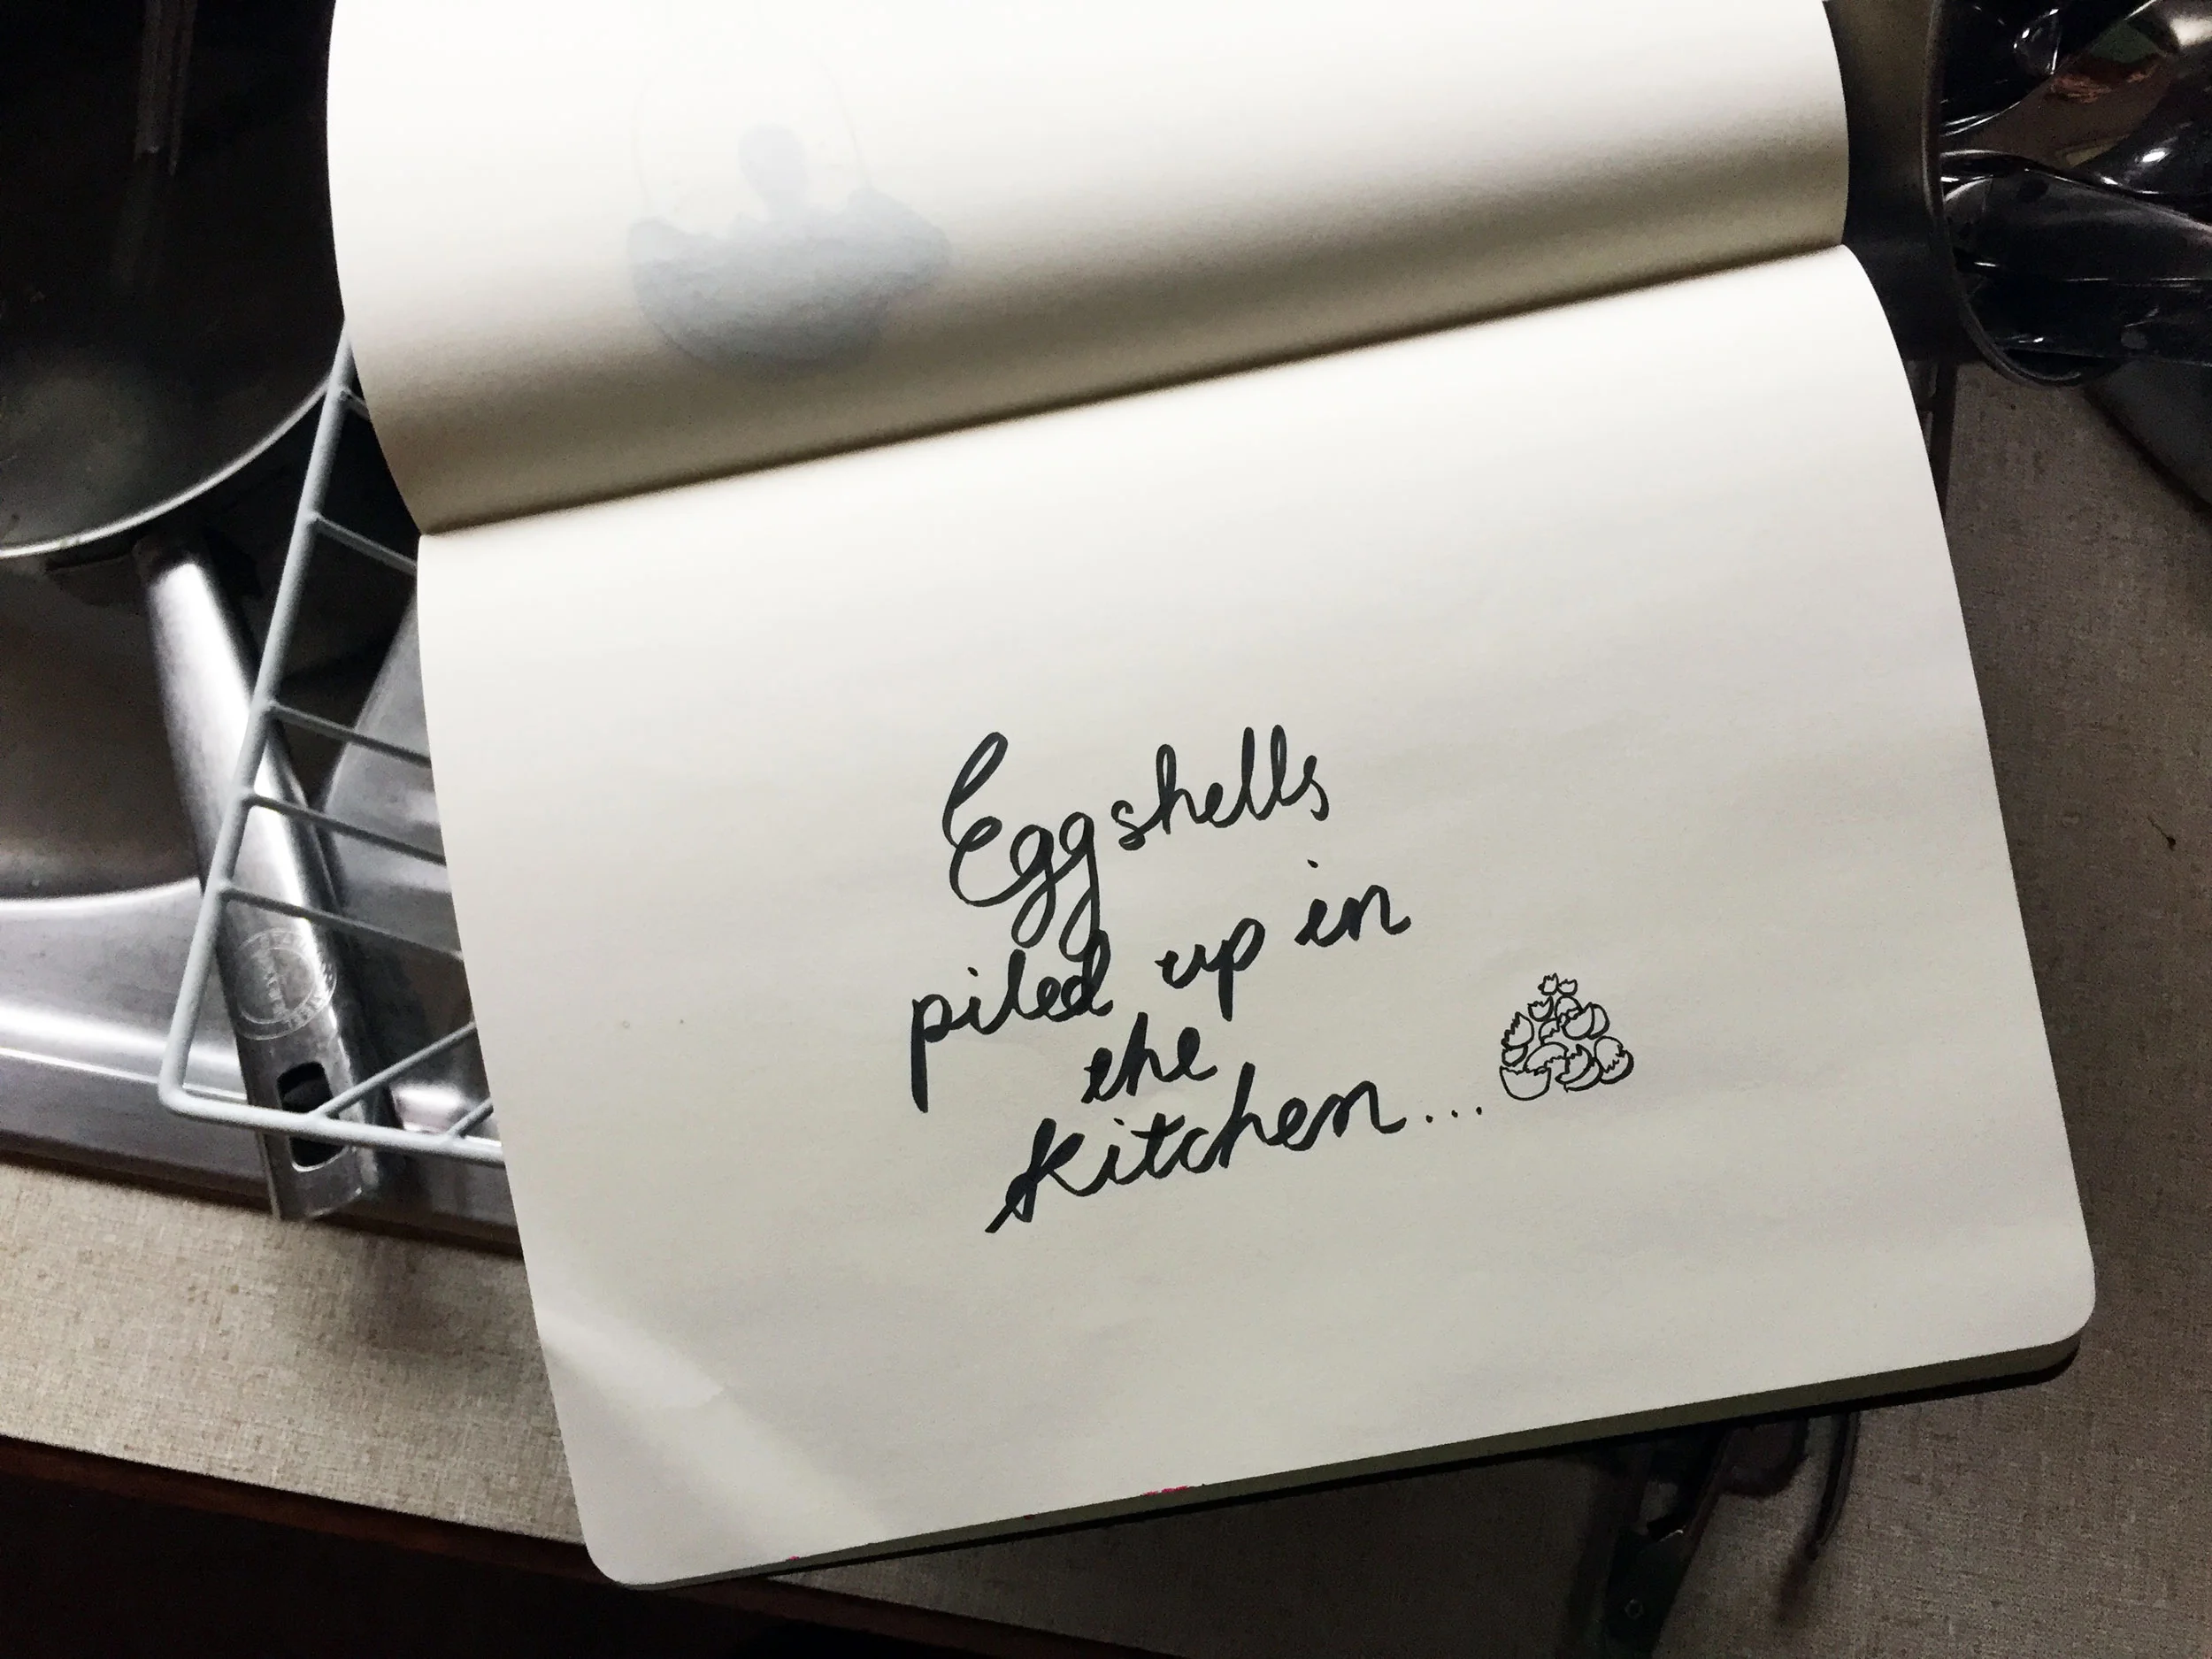 Eggshells
piled up in
the
kitchen...